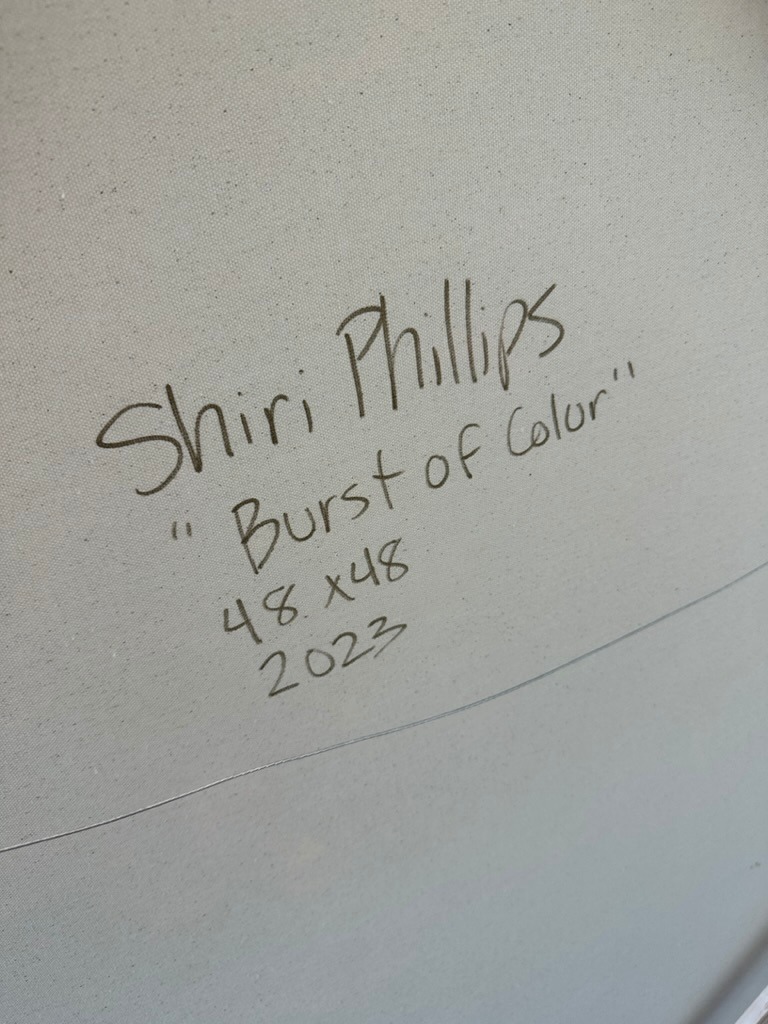 Shiri Phillips
"Burst of Color"
48 x48
2023